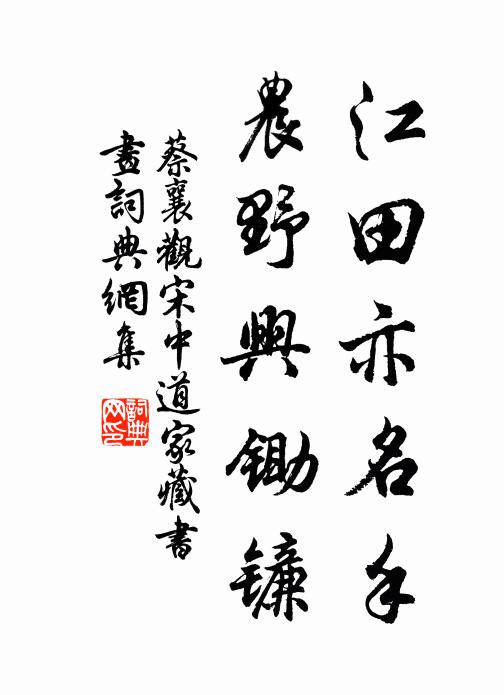 江田亦名手
農野興鋤鐮
蔡襄觀宋中道家藏書
畫詞典網集
詞典
网印